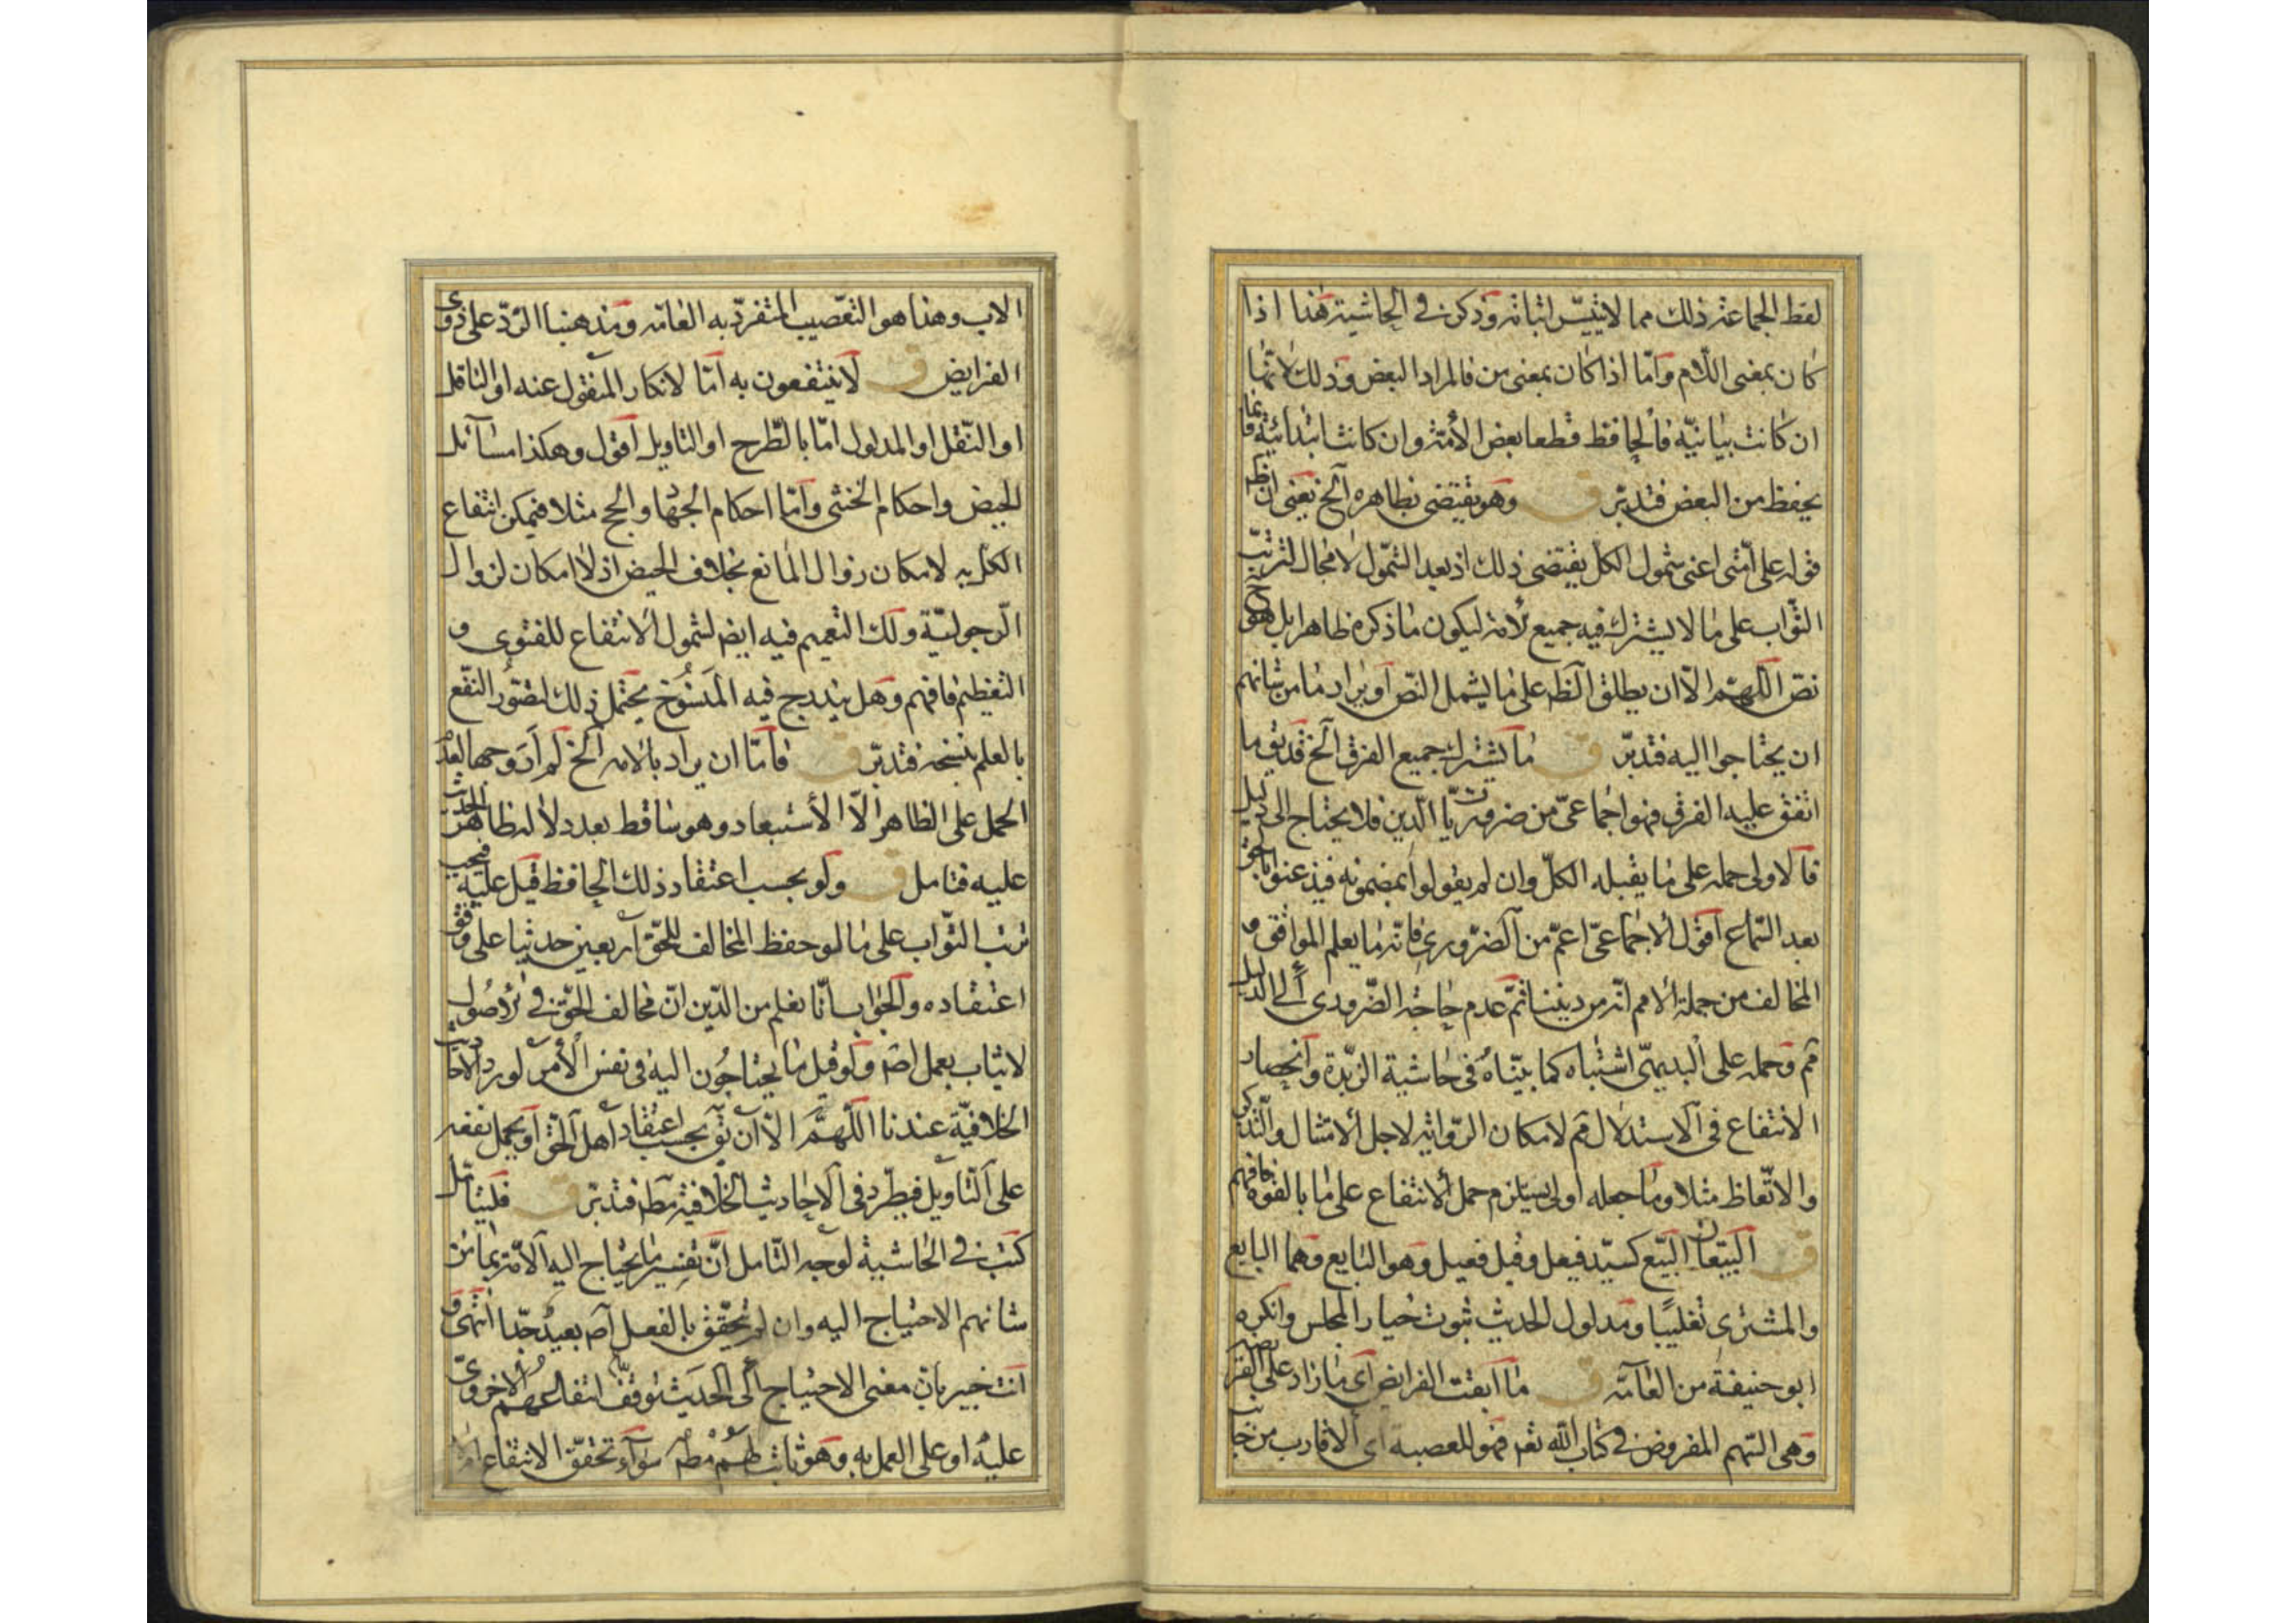 لفظ الجماعة ذلك مما لا يتيسّر اثباته وذكر في الحاشية هذا اذا
كان بمعنى اللّام وأمّا اذا كان بمعنى من فالمراد البعض وذلك لانّها
ان كانت بيانيّة فالحافظ قطعا بعض الأمّة وان كانت ابتدائيّة فانما
يحفظ من البعض فتدبّر ق وهو يقتضى بظاهره الخ يعنى ان ظ
قوله على أمّتى اعنى شمول الكلّ يقتضى ذلك اذ بعد الشّمول لا مجال لترتّب
الثّواب على ما لا يشترك فيه جميع الأمة ليكون ما ذكره ظاهرا بل هو ح
نصّ اللّهمّ الّا ان يطلق الظّ على ما يشمل النّص او يراد ما من شانهم
ان يحتاجوا اليه فتدبّر ق ما يشترك جميع الفرق الخ قد يق ما
اتفق عليه الفرق فهو اجماعىّ من ضروريّات الدّين فلا يحتاج الى دليل
فالاولى حمله على ما يقبله الكلّ وان لم يقولوا بمضمونه فيذعنوا بالحق
بعد السّماع اقول الاجماعىّ اعمّ من الضّرورى فانّه ما يعلم الموافق و
المخالف من جملة الامم انّه من ديننا ثمّ عدم حاجة الضّرورى الى الدليل
ثم وحمله على البديهىّ اشتباه كما بيّناه فى حاشية الزّبدة وانحصار
الانتفاع فى الاستدلال ثم لامكان الرّواية لاجل الامتثال والتّذكر
والاتّعاظ مثلا وما جعله اولى يستلزم حمل الانتفاع على ما بالقوه فافهم
ق البيّعان البيّع كسيّد فيعل وقيل فعيل وهو البايع وهما البايع
والمشترى تغليبًا ومدلول الحديث ثبوت خيار المجلس وانكره
ابو حنيفة من العامّه ق ما ابقت الفرايض اى ما زاد على الفرايض
وهى السّهم المفروض فى كتاب الله نعم فهو للعصبة اى الاقارب من جانب
الاب وهذا هو التعصيب المتفرّد به العامّه ومذهبنا الرّد على ذوى
الفرايض ق لا ينتفعون به امّا لانكار المنقول عنه او الناقل
او النّقل او المدلول امّا بالطّرح او التاويل اقول وهكذا مسائل
الحيض واحكام الخنثى وأمّا احكام الجهاد والحج مثلا فيمكن انتفاع
الكلّ به لامكان زوال المانع بخلاف الحيض اذ لا امكان لزوال
الرّجوليّة ولك التعميم فيه ايض لشمول الانتفاع للفتوى و
التعظيم فافهم وهل يندرج فيه المنسوخ يحتمل ذلك لتصوّر النّفع
بالعلم بنسخه فتدبّر ق فامّا ان يراد بالامة الخ لم أر وجها لعدم
الحمل على الظاهر الّا الأستبعاد وهو ساقط بعد دلالة ظاهر الحديث
عليه فتامل ق ولو بحسب اعتقاد ذلك الحافظ قيل عليه فيجب
ترتب الثّواب على ما لو حفظ المخالف للحقّ اربعين حديثا على وفق
اعتقاده والجواب انّا نعلم من الدّين انّ مخالف الحقّ فى الاصول
لا يثاب بعمل اصَ ولو قيل ما يحتاجُون اليه فى نفس الأمر لورد الاحاديث
الخلافيّة عندنا اللّهمّ الّا ان يق بحسب اعتقاد اهل الحق او يحمل نفعه
على التاويل فيطّرد فى الاحاديث الخلافية مط فتدبّر ق فليتامل
كتب فى الحاشية لوجه التّامل انّ تفسير ما يحتاج اليه الامّة بما من
شانهم الاحتياج اليه وان لم يتحقّق بالفعل امر بعيد جدّا انتهى و
انت خبير بانّ معنى الاحتياج الى الحديث توقّف انتفاعهم الاخروىّ
عليه او على العمل به وهو ثابت لهم مط سواء تحقّق الانتفاع